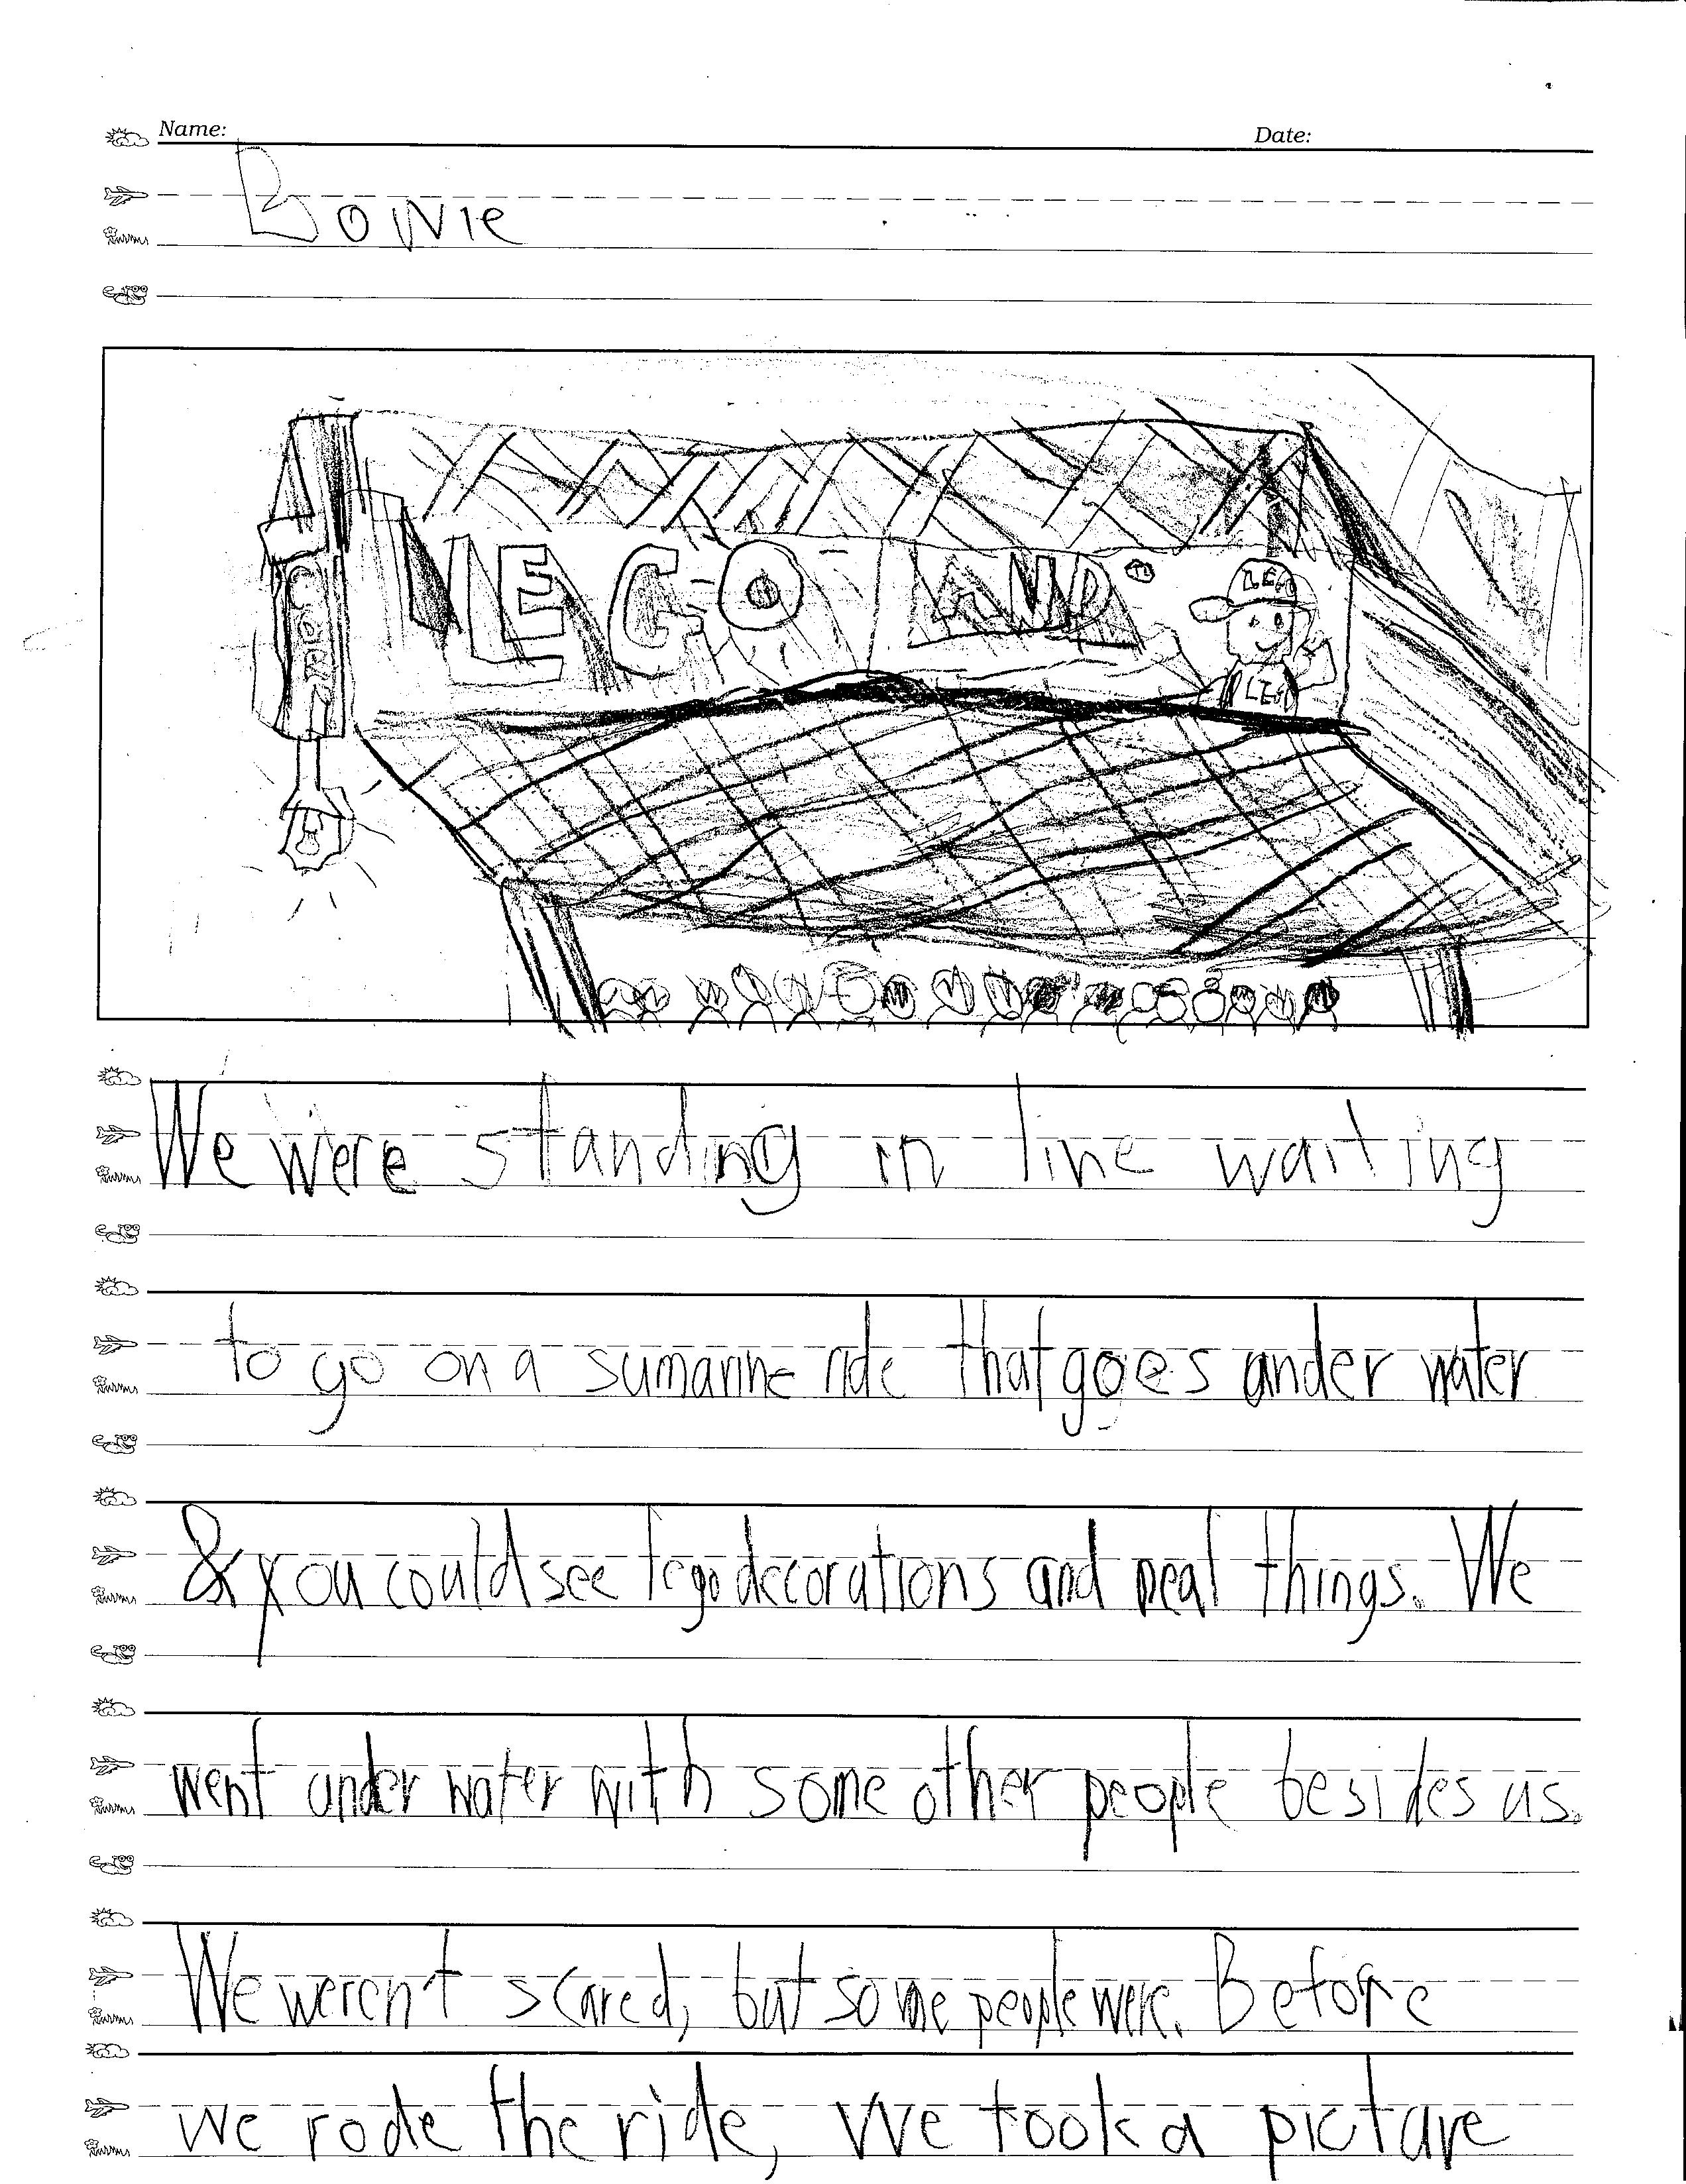 Name: Date:
Bowie
LEGO LAND
LEGO
We were standing in line waiting
to go on a sumarine ride that goes under water
& you could see lego decorations and real things. We
went under water with some other people besides us.
We weren't scared, but some people were. Before
we rode the ride, we took a picture